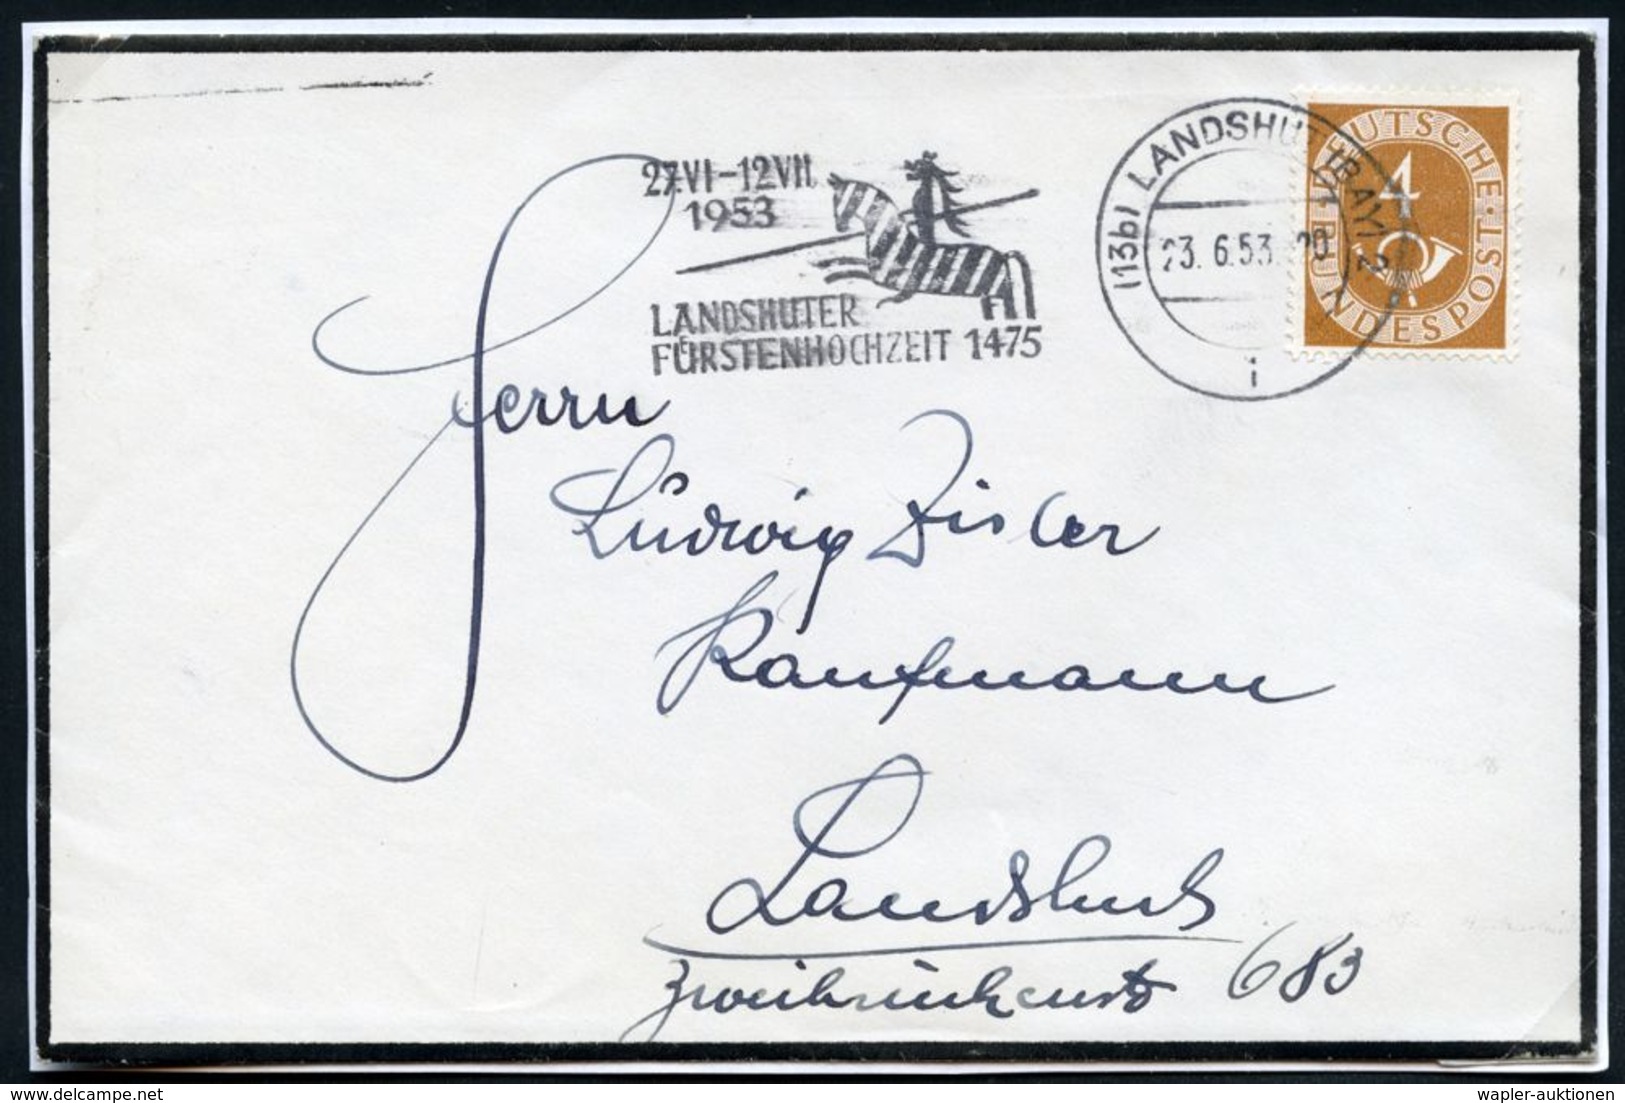 27.VI-12.VII.
1953
LANDSHUTER
FUERSTENHOCHZEIT 1475
(13b) LANDSHUT (BAY) 2
23.6.53. 20
i
DEUTSCHE · BUNDESPOST ·
4
Herrn
Ludwig Zisler
Kaufmann
Landshut
Zweibrückenstr 683
wapler-auktionen